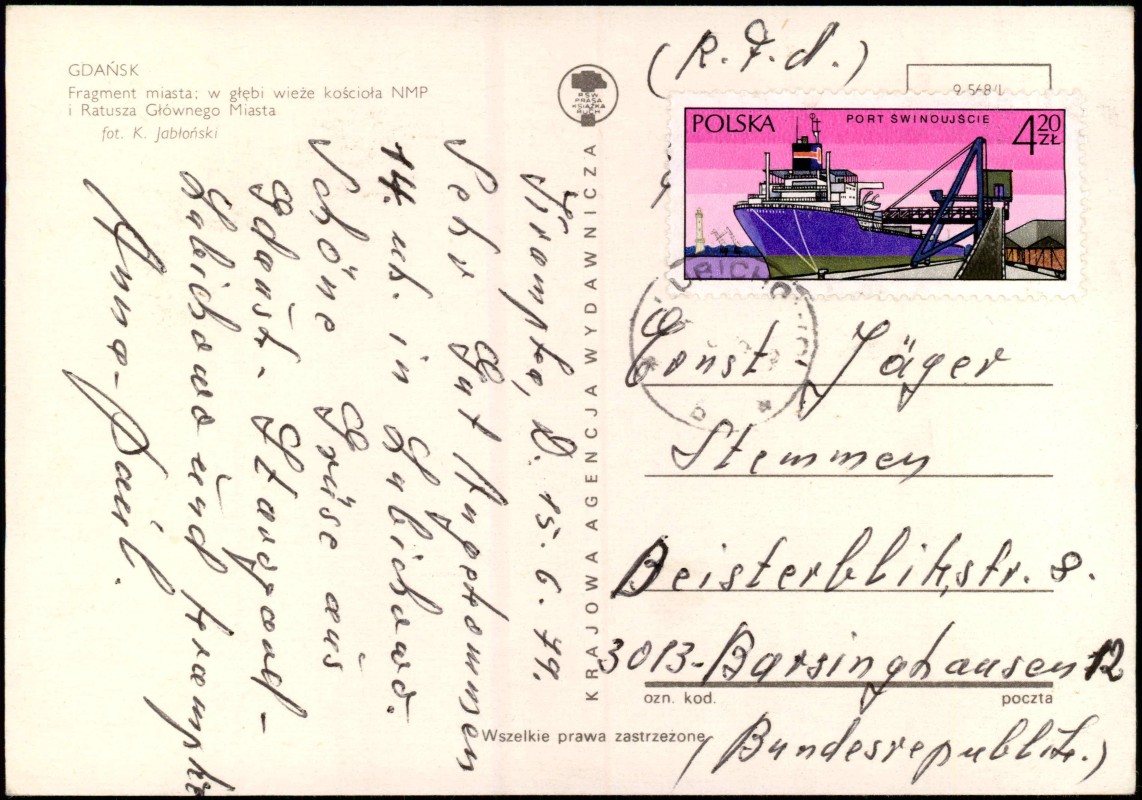 GDAŃSK
Fragment miasta; w głębi wieże kościoła NMP
i Ratusza Głównego Miasta
fot. K. Jabłoński
D. 15.6.79.
Sehr Gut Angekommen
14. uh. in Lubichowo.
Schöne Grüse aus
Gdańsk - Stargard -
Lubichowo und
Anna-
RSW
PRASA
KSIĄŻKA
RUCH
KRAJOWA AGENCJA WYDAWNICZA
Wszelkie prawa zastrzeżone
(R.F.d.)
POLSKA
PORT ŚWINOUJŚCIE
4 20 ZŁ
LUBICHOWO
Ernst Jäger
Stemmen
Deisterblikstr. 8.
3013-Barsinghausen 12
ozn. kod. poczta
(Bundesrepublik.)